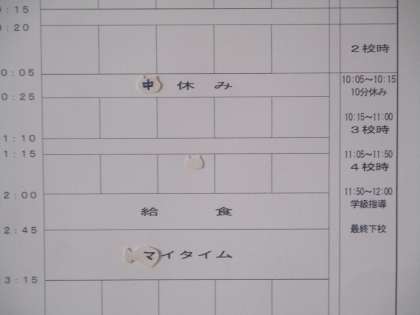 :15
:20
2校時
0:05
中休み
10:05～10:15
10分休み
0:25
10:15～11:00
3校時
1:10
1:15
11:05～11:50
4校時
2:00
11:50～12:00
学級指導
給食
2:45
最終下校
マイタイム
3:15